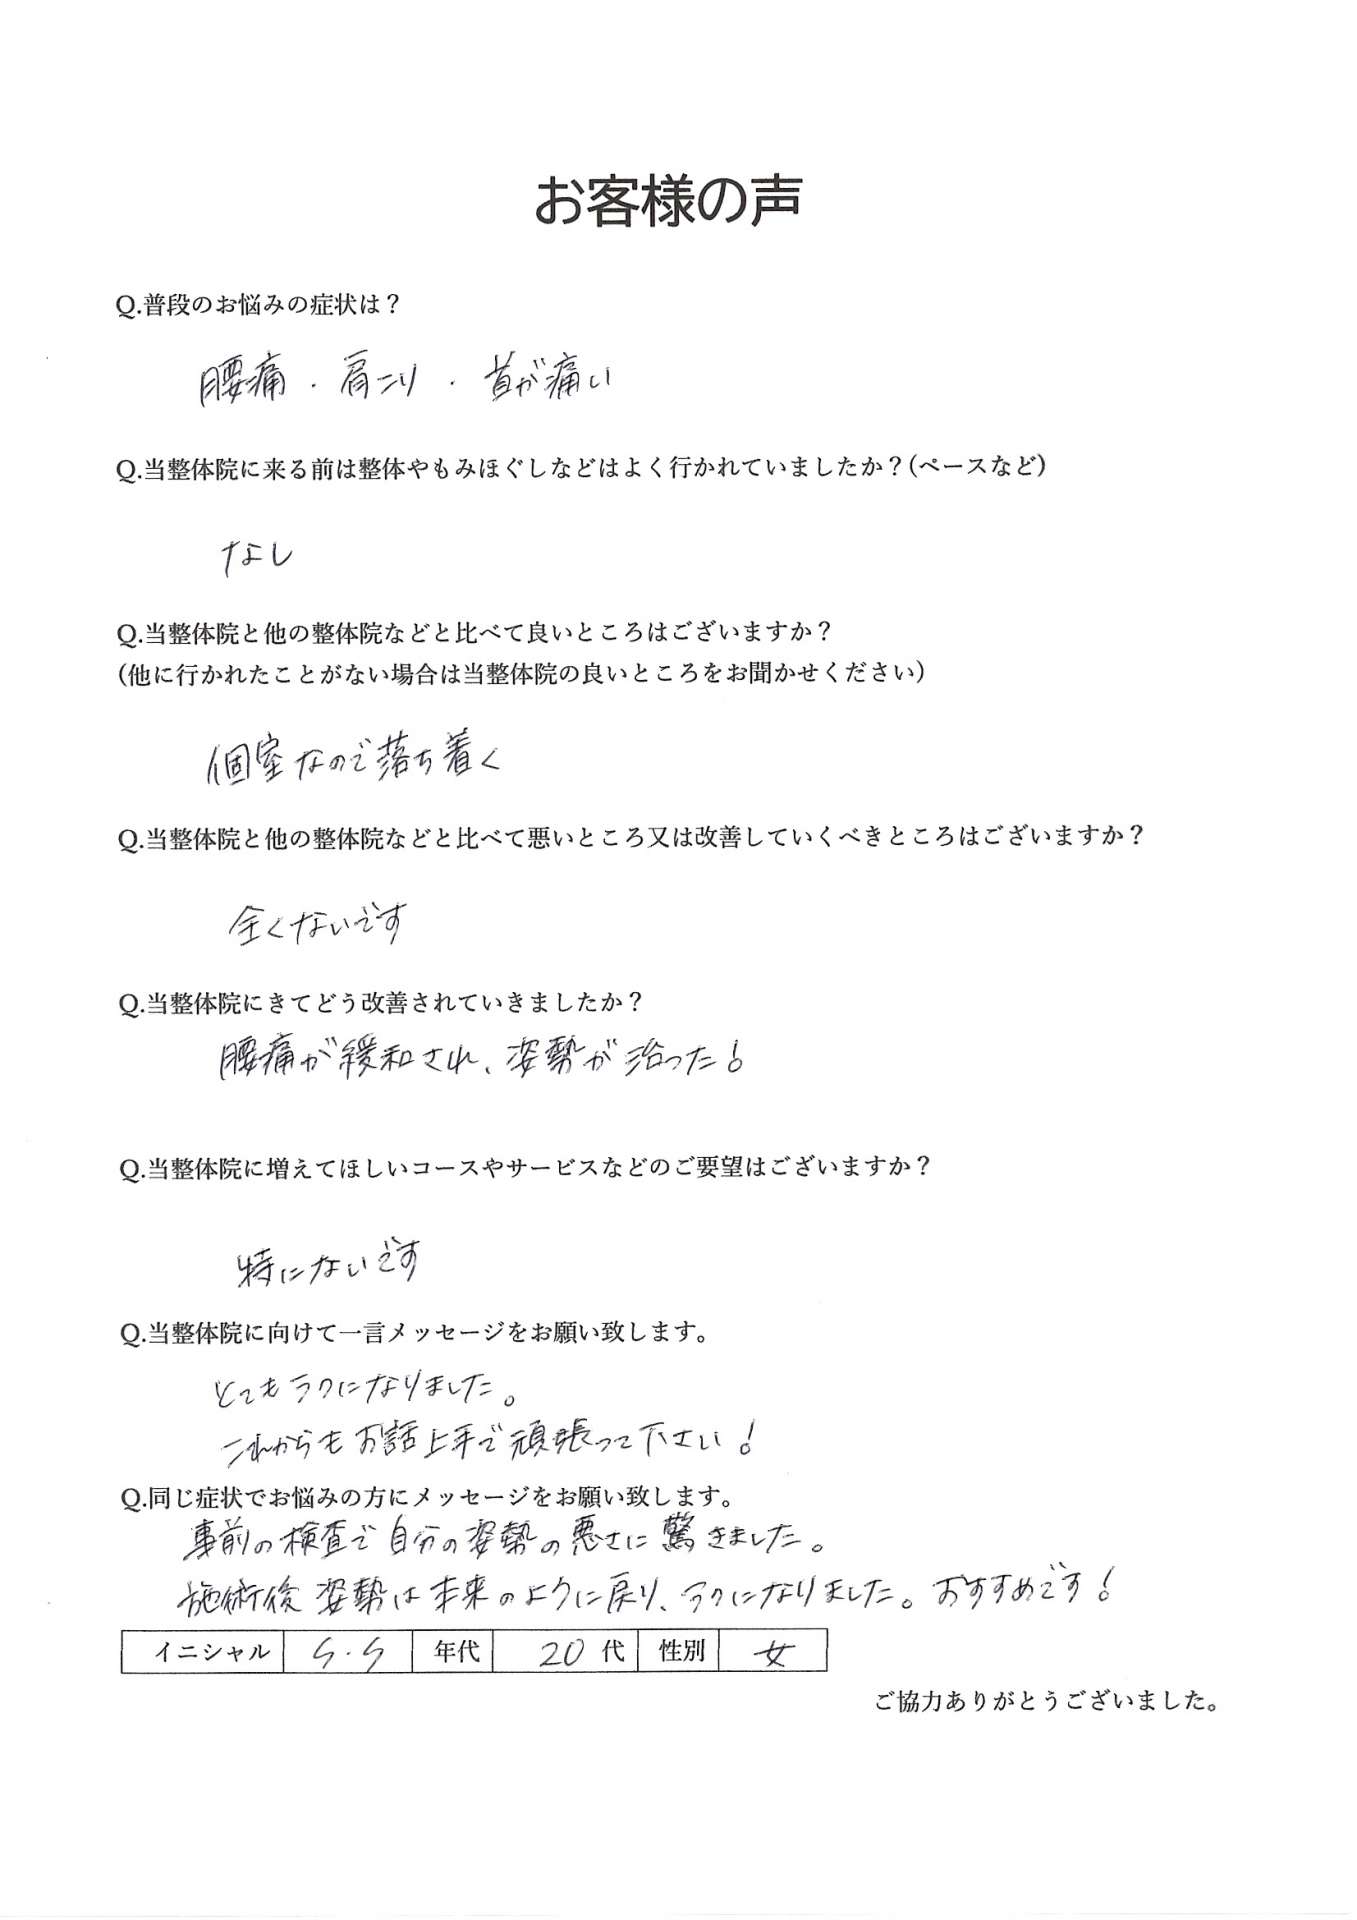 お客様の声
Q.普段のお悩みの症状は？
腰痛 . 肩こり . 首が痛い
Q.当整体院に来る前は整体やもみほぐしなどはよく行かれていましたか？(ペースなど)
なし
Q.当整体院と他の整体院などと比べて良いところはございますか？
(他に行かれたことがない場合は当整体院の良いところをお聞かせください)
個室なので落ち着く
Q.当整体院と他の整体院などと比べて悪いところ又は改善していくべきところはございますか？
全くないです
Q.当整体院にきてどう改善されていきましたか？
腰痛が緩和され、姿勢が治った！
Q.当整体院に増えてほしいコースやサービスなどのご要望はございますか？
特にないです
Q.当整体院に向けて一言メッセージをお願い致します。
とてもラクになりました。
これからもお話上手で頑張って下さい！
Q.同じ症状でお悩みの方にメッセージをお願い致します。
事前の検査で自分の姿勢の悪さに驚きました。
施術後 姿勢は本来のように戻り、ラクになりました。おすすめです！
イニシャル S.S 年代 20 代 性別 女
ご協力ありがとうございました。